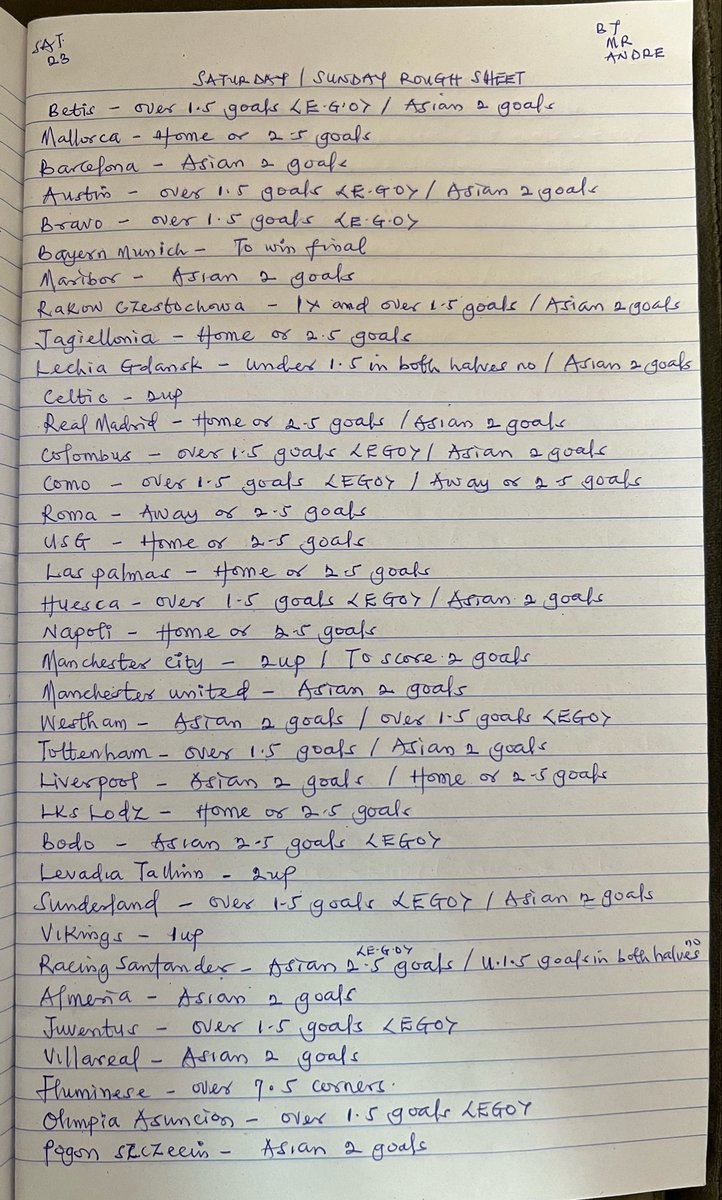 SAT.
23
BY
MR
ANDRE
SATURDAY / SUNDAY ROUGH SHEET
Betis - over 1.5 goals <E.G.O> / Asian 2 goals
Mallorca - Home or 2.5 goals
Barcelona - Asian 2 goals
Austin - over 1.5 goals <E.GO> / Asian 2 goals
Bravo - over 1.5 goals <E.G.O>
Bayern Munich - To win final
Maribor - Asian 2 goals
Rakow Czestochowa - 1x and over 1.5 goals / Asian 2 goals
Jagiellonia - Home or 2.5 goals
Lechia Gdansk - under 1.5 in both halves no / Asian 2 goals
Celtic - 2up
Real Madrid - Home or 2.5 goals / Asian 2 goals
Colombus - over 1.5 goals <EGO> / Asian 2 goals
Como - over 1.5 goals <EGO> / Away or 2.5 goals
Roma - Away or 2.5 goals
USG - Home or 2.5 goals
Las palmas - Home or 2.5 goals
Huesca - over 1.5 goals <EGO> / Asian 2 goals
Napoli - Home or 2.5 goals
Manchester City - 2up / To score 2 goals
Manchester united - Asian 2 goals
Westham - Asian 2 goals / over 1.5 goals <EGO>
Tottenham - over 1.5 goals / Asian 2 goals
Liverpool - Asian 2 goals / Home or 2.5 goals
LKS Lodz - Home or 2.5 goals
Bodo - Asian 2.5 goals <EGO>
Levadia Tallinn - 2up
Sunderland - over 1.5 goals <EGO> / Asian 2 goals
Vikings - 1up
Racing Santander - Asian 2.5 <E.G.O> goals / U.1.5 goals in both halves no
Almeria - Asian 2 goals
Juventus - over 1.5 goals <EGO>
Villareal - Asian 2 goals
Fluminese - over 7.5 corners.
Olimpia Asuncion - over 1.5 goals <EGO>
Pogon Szczecin - Asian 2 goals